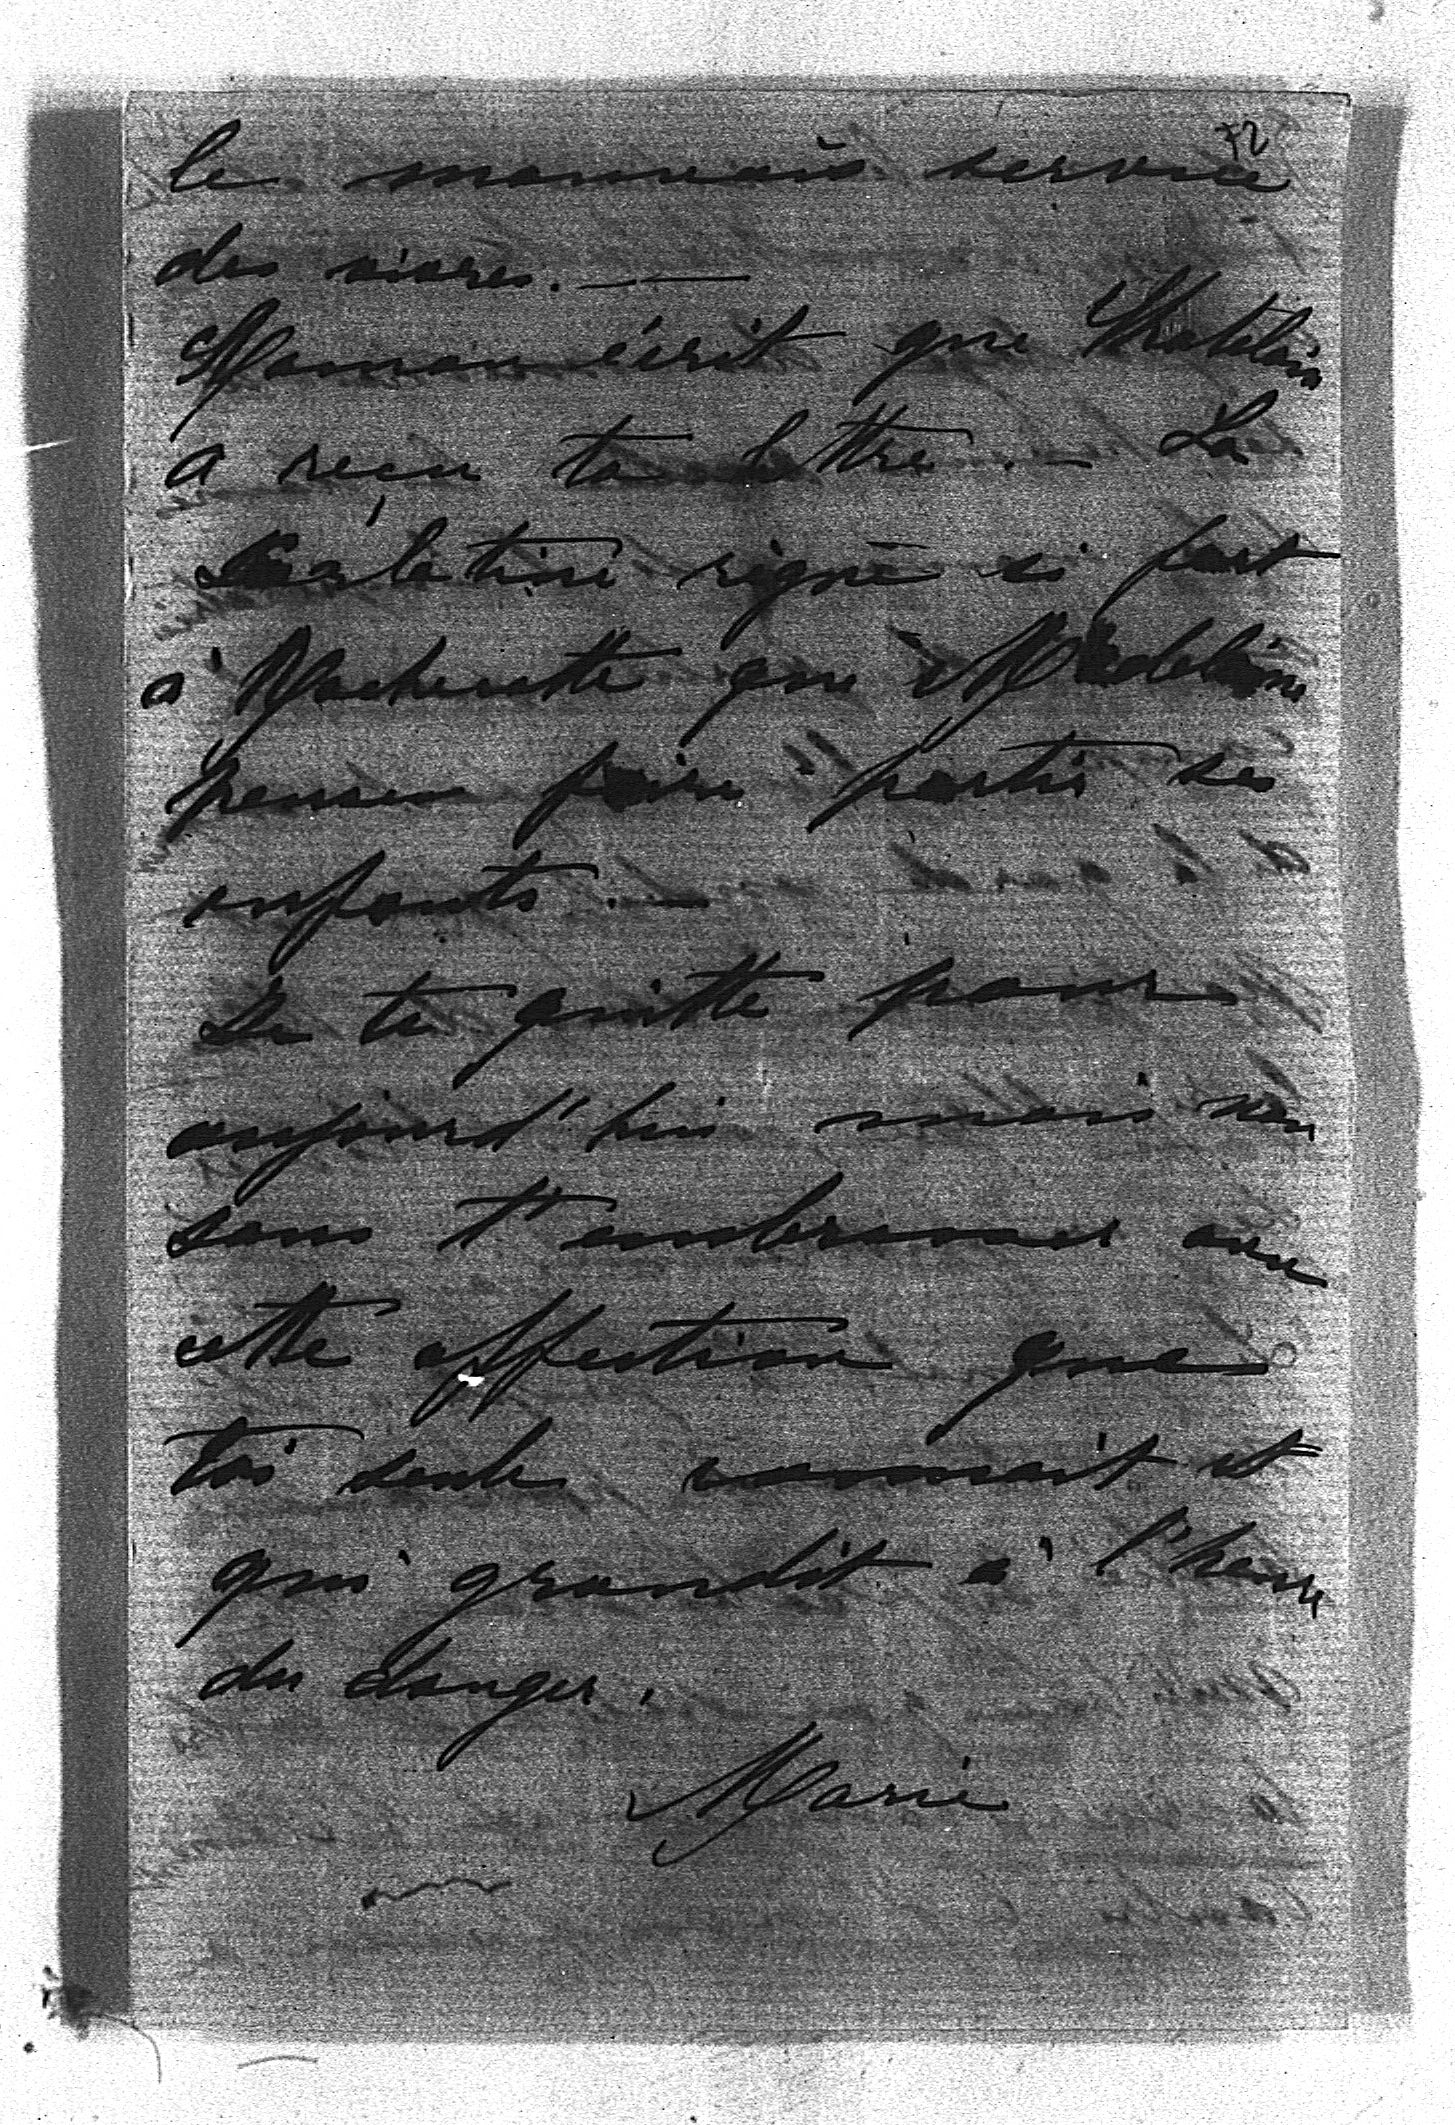 72
le mauvais service
des vivres. —
Maman écrit que
a reçu ta lettre. — La
Scarlatine règne si fort
à que Madeleine
pense faire partir ses
enfants. —
Je te quitte pour
aujourd'hui mais non
sans t'embrasser avec
cette affection que
toi seule connait et
qui grandit à l'heure
du danger.
Marie